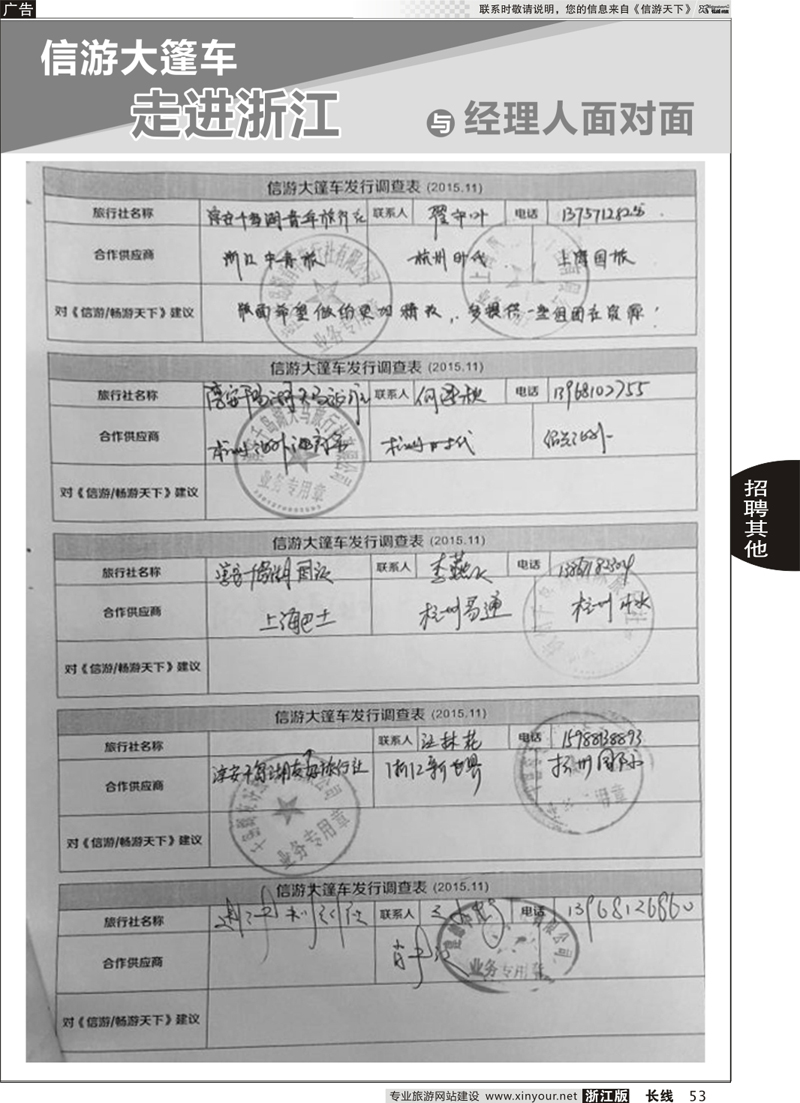 广告
联系时敬请说明，您的信息来自《信游天下》
信游大篷车
走进浙江
与经理人面对面
信游大篷车发行调查表 (2015.11)
旅行社名称 淳安千岛湖青年旅行社 联系人 电话
合作供应商 浙江中青旅 杭州时代 上海国旅
对《信游/畅游天下》建议 版面希望做的更加精致，多提供一些组团社资源！
业务专用章
信游大篷车发行调查表 (2015.11)
旅行社名称 联系人 电话 13968102755
合作供应商 杭州时代
淳安千岛湖天马旅行社有限公司
业务专用章
对《信游/畅游天下》建议
信游大篷车发行调查表 (2015.11)
旅行社名称 淳安千岛湖国旅 联系人 电话
合作供应商 上海巴士 杭州易通
对《信游/畅游天下》建议
信游大篷车发行调查表 (2015.11)
旅行社名称 联系人 汪林花 电话 15988138893
合作供应商 淳安千岛湖友好旅行社 浙江新世界
业务专用章
对《信游/畅游天下》建议
信游大篷车发行调查表 (2015.11)
旅行社名称 联系人 电话 13968126860
合作供应商
业务专用章
对《信游/畅游天下》建议
招聘其他
专业旅游网站建设 www.xinyour.net 浙江版 长线 53